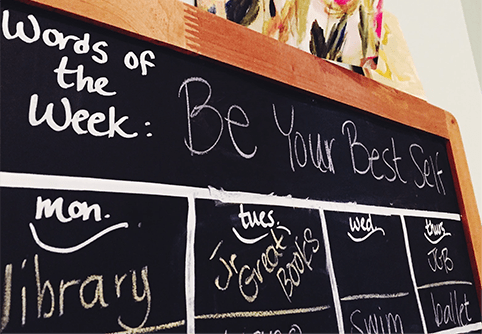 Words of
the
Week:
Be Your Best Self
mon.
library
tues.
Jr.
Great
Books
wed.
swim
thurs.
ballet